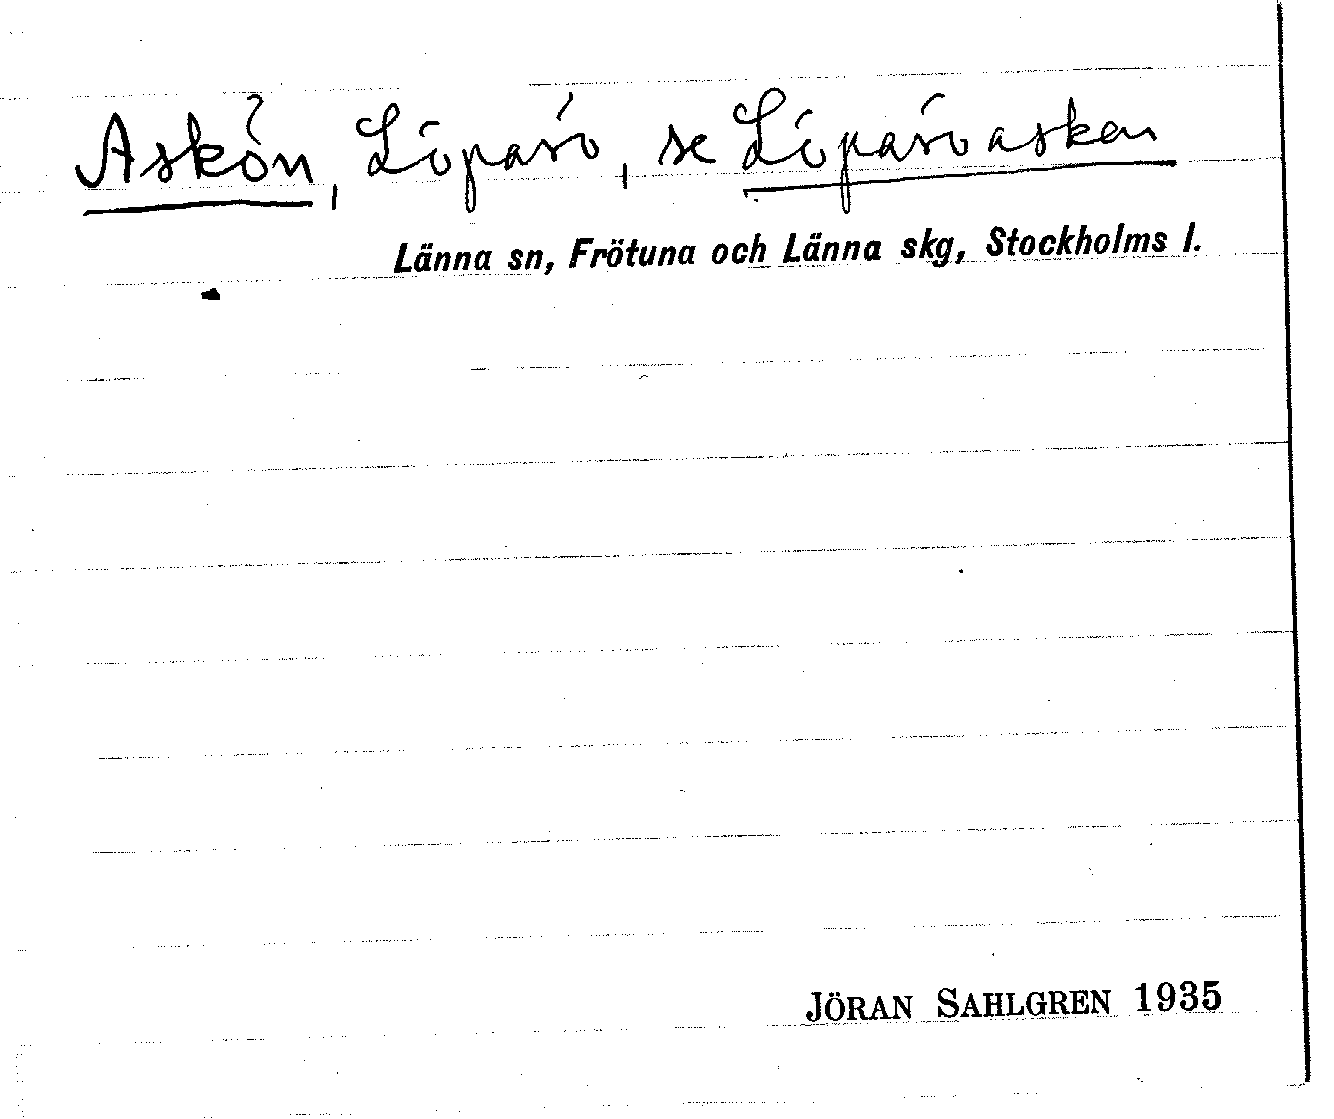 Askön, Löparö, se Löparöasken
Länna sn, Frötuna och Länna skg, Stockholms l.
JÖRAN SAHLGREN 1935